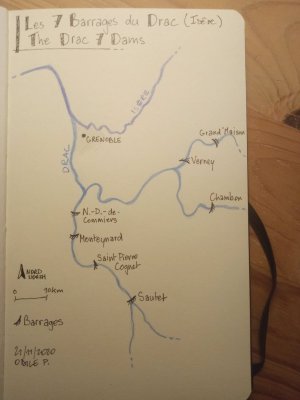 Les 7 Barrages du Drac (Isère)
The Drac 7 Dams
ISÈRE
GRENOBLE
DRAC
Grand'Maison
Verney
Chambon
N.-D.-de-
Commiers
Monteynard
Saint Pierre
Cognet
Sautet
NORD
NORTH
0
10km
Barrages
21/11/2020